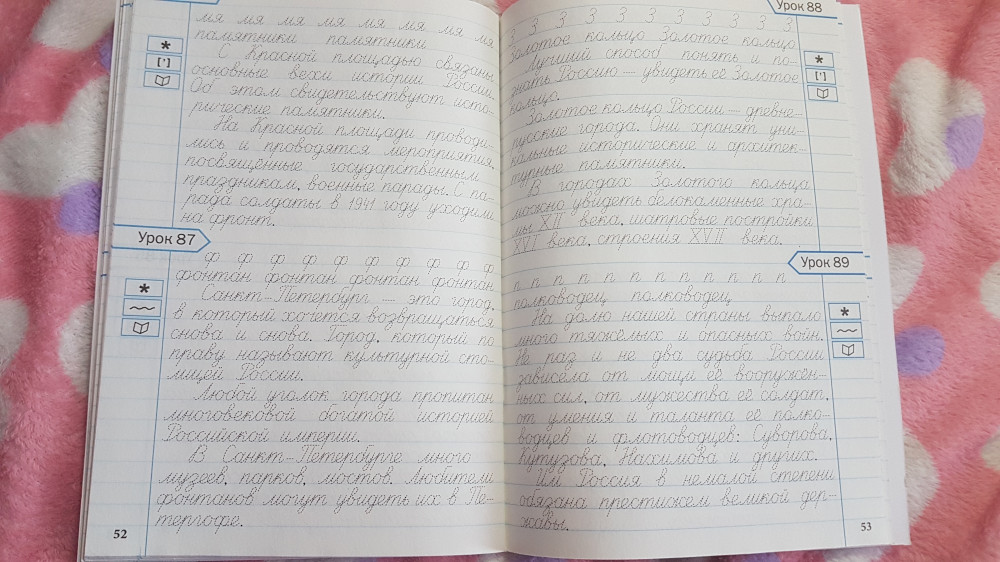 мя мя мя мя мя мя мя
памятники памятники
С Красной площадью связаны
основные вехи истории России.
Об этом свидетельствуют исто-
рические памятники.
На Красной площади проводи-
лись и проводятся мероприятия,
посвящённые государственным
праздникам, военные парады. С па-
рада солдаты в 1941 году уходили
на фронт.
Урок 87
ф ф ф ф ф ф ф ф ф ф
фонтан фонтан фонтан фонтан
Санкт-Петербург — это город,
в который хочется возвращаться
снова и снова. Город, который по
праву называют культурной сто-
лицей России.
Любой уголок города пропитан
многовековой богатой историей
Российской империи.
В Санкт-Петербурге много
музеев, парков, мостов. Любители
фонтанов могут увидеть их в Пе-
тергофе.
52
Урок 88
З З З З З З З З З З З
Золотое кольцо Золотое кольцо
Лучший способ понять и по-
знать Россию — увидеть её Золотое
кольцо.
Золотое кольцо России — древне-
русские города. Они хранят уни-
кальные исторические и архитек-
турные памятники.
В городах Золотого кольца
можно увидеть белокаменные хра-
мы XII века, шатровые постройки
XVI века, строения XVII века.
Урок 89
п п п п п п п п п п п п
полководец полководец
На долю нашей страны выпало
много тяжёлых и опасных войн.
Не раз и не два судьба России
зависела от мощи её вооружён-
ных сил, от мужества её солдат,
от умения и таланта её полко-
водцев и флотоводцев: Суворова,
Кутузова, Нахимова и других.
Им Россия в немалой степени
обязана престижем великой дер-
жавы.
53